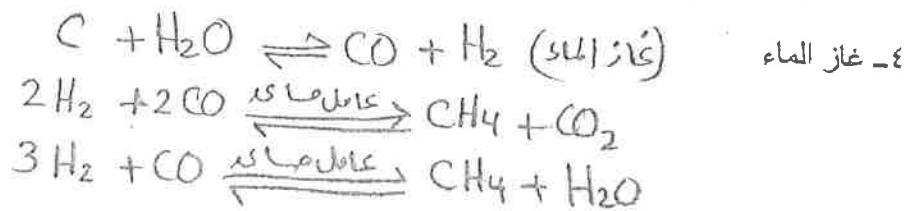 ٤ـ غاز الماء
C + H₂O ⇌ CO + H₂ (غاز الماء)
2H₂ + 2CO ⇌ عامل مساعد CH₄ + CO₂
3H₂ + CO ⇌ عامل مساعد CH₄ + H₂O